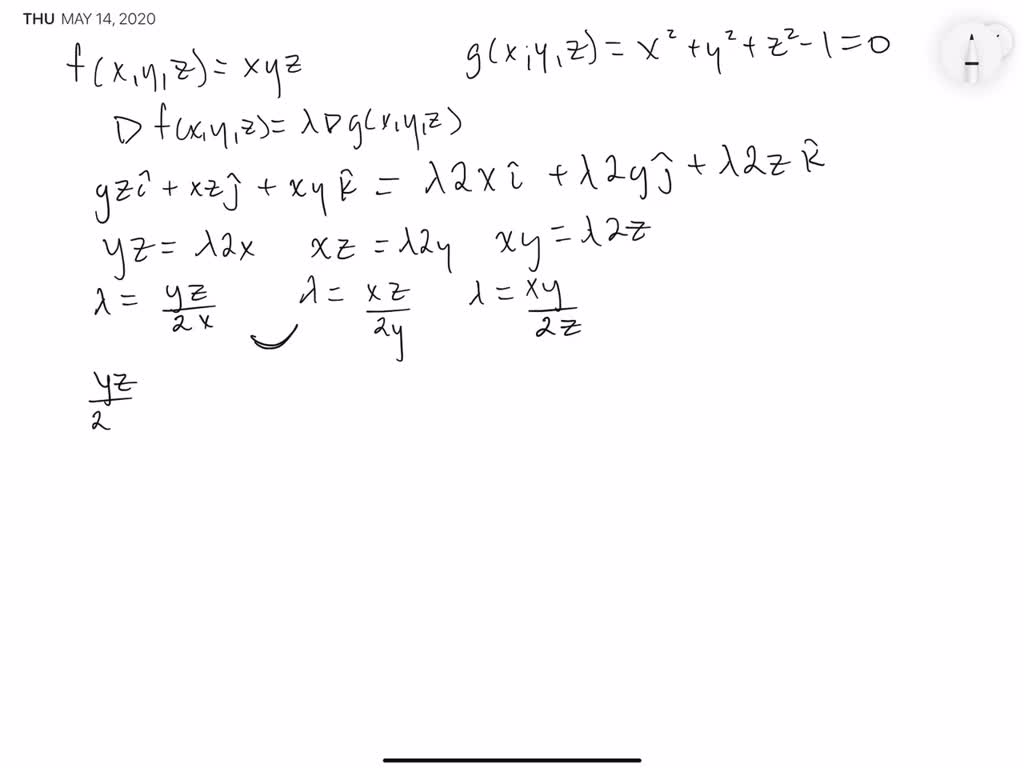 THU MAY 14, 2020
f(x,y,z) = xyz g(x,y,z) = x² + y² + z² - 1 = 0
∇f(x,y,z) = λ∇g(x,y,z)
yzî + xzĵ + xyk̂ = λ2xî + λ2yĵ + λ2zk̂
yz = λ2x xz = λ2y xy = λ2z
λ = yz/2x λ = xz/2y λ = xy/2z
yz/2